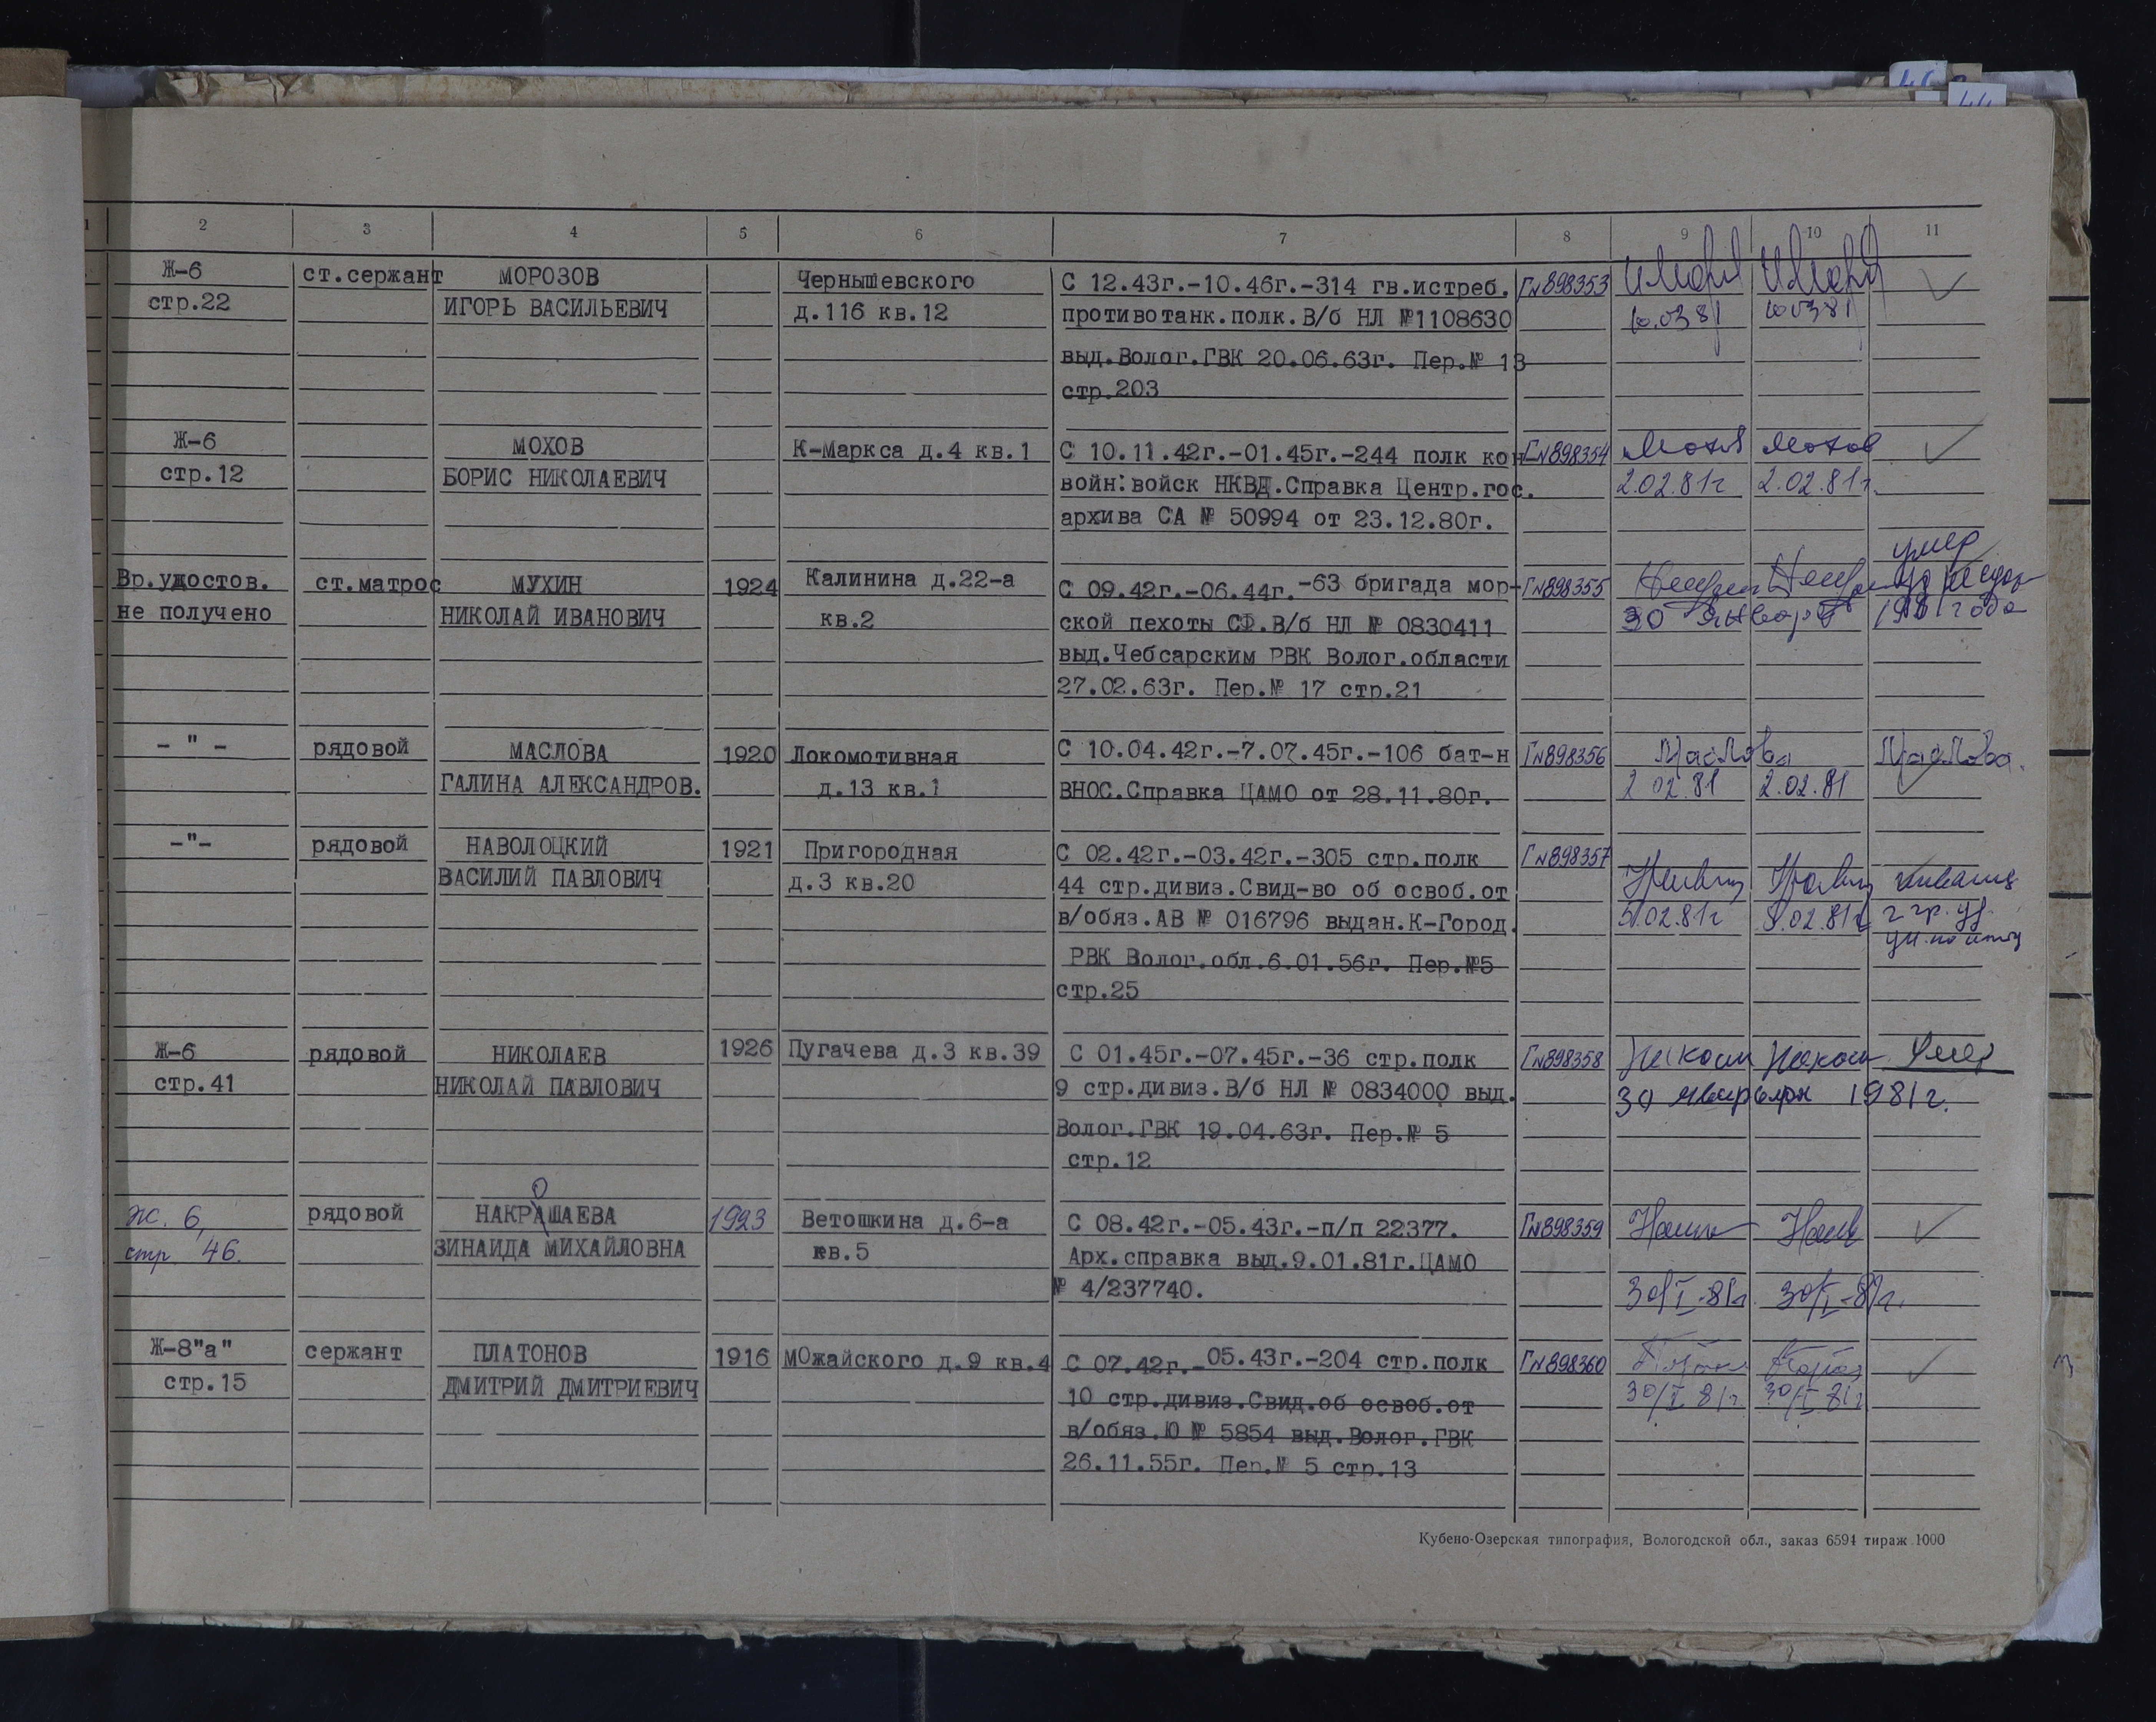 1 2 3 4 5 6 7 8 9 10 11
Ж-6 ст.сержант МОРОЗОВ Чернышевского С 12.43г.-10.46г.-314 гв.истреб. Г№898353
стр.22 ИГОРЬ ВАСИЛЬЕВИЧ д.116 кв.12 противотанк.полк.В/б НЛ №1108630 10.03 81 10 03 81
выд.Волог.ГВК 20.06.63г. Пер.№ 13
стр.203
Ж-6 МОХОВ К-Маркса д.4 кв.1 С 10.11.42г.-01.45г.-244 полк кон Г№898354 Мохов Мохов
стр.12 БОРИС НИКОЛАЕВИЧ войн:войск НКВД.Справка Центр.гос. 2.02.81г 2.02.81г.
архива СА № 50994 от 23.12.80г.
умер
Вр.удостов. ст.матрос МУХИН 1924 Калинина д.22-а С 09.42г.-06.44г.-63 бригада мор- Г№898355
не получено НИКОЛАЙ ИВАНОВИЧ кв.2 ской пехоты СФ.В/б НЛ № 0830411 30 января 1981 года
выд.Чебсарским РВК Волог.области
27.02.63г. Пер.№ 17 стр.21
- " - рядовой МАСЛОВА 1920 Локомотивная С 10.04.42г.-7.07.45г.-106 бат-н Г№898356 Маслова Маслова.
ГАЛИНА АЛЕКСАНДРОВ. д.13 кв.1 ВНОС.Справка ЦАМО от 28.11.80г. 2 02.81 2.02.81
-"- рядовой НАВОЛОЦКИЙ 1921 Пригородная С 02.42г.-03.42г.-305 стр.полк Г№898357
ВАСИЛИЙ ПАВЛОВИЧ д.3 кв.20 44 стр.дивиз.Свид-во об освоб.от
в/обяз.АВ № 016796 выдан.К-Город. 5.02.81г 5.02.81г 2 гр.
РВК Волог.обл.6.01.56г. Пер.№5
стр.25
Ж-6 рядовой НИКОЛАЕВ 1926 Пугачева д.3 кв.39 С 01.45г.-07.45г.-36 стр.полк Г№898358 Умер
стр.41 НИКОЛАЙ ПАВЛОВИЧ 9 стр.дивиз.В/б НЛ № 0834000 выд. 30 1981г.
Волог.ГВК 19.04.63г. Пер.№ 5
стр.12
О
Ж. 6, рядовой НАКРАШАЕВА 1923 Ветошкина д.6-а С 08.42г.-05.43г.-п/п 22377. Г№898359
стр 46. ЗИНАИДА МИХАЙЛОВНА кв.5 Арх.справка выд.9.01.81г.ЦАМО
№ 4/237740. 30/I-81г. 30/I-81г.
Ж-8"а" сержант ПЛАТОНОВ 1916 МОжайского д.9 кв.4 С 07.42г.-05.43г.-204 стр.полк Г№898360
стр.15 ДМИТРИЙ ДМИТРИЕВИЧ 10 стр.дивиз.Свид.об освоб.от 30/I 81г. 30/I 81г
в/обяз.Ю № 5854 выд.Волог.ГВК
26.11.55г. Пер.№ 5 стр.13
Кубено-Озерская типография, Вологодской обл., заказ 6594 тираж 1000